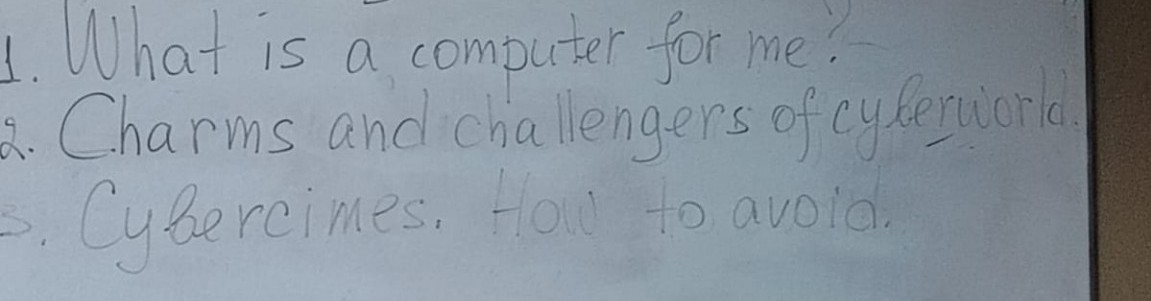 1. What is a computer for me?
2. Charms and challengers of cyberworld.
3. Cybercimes. How to avoid.